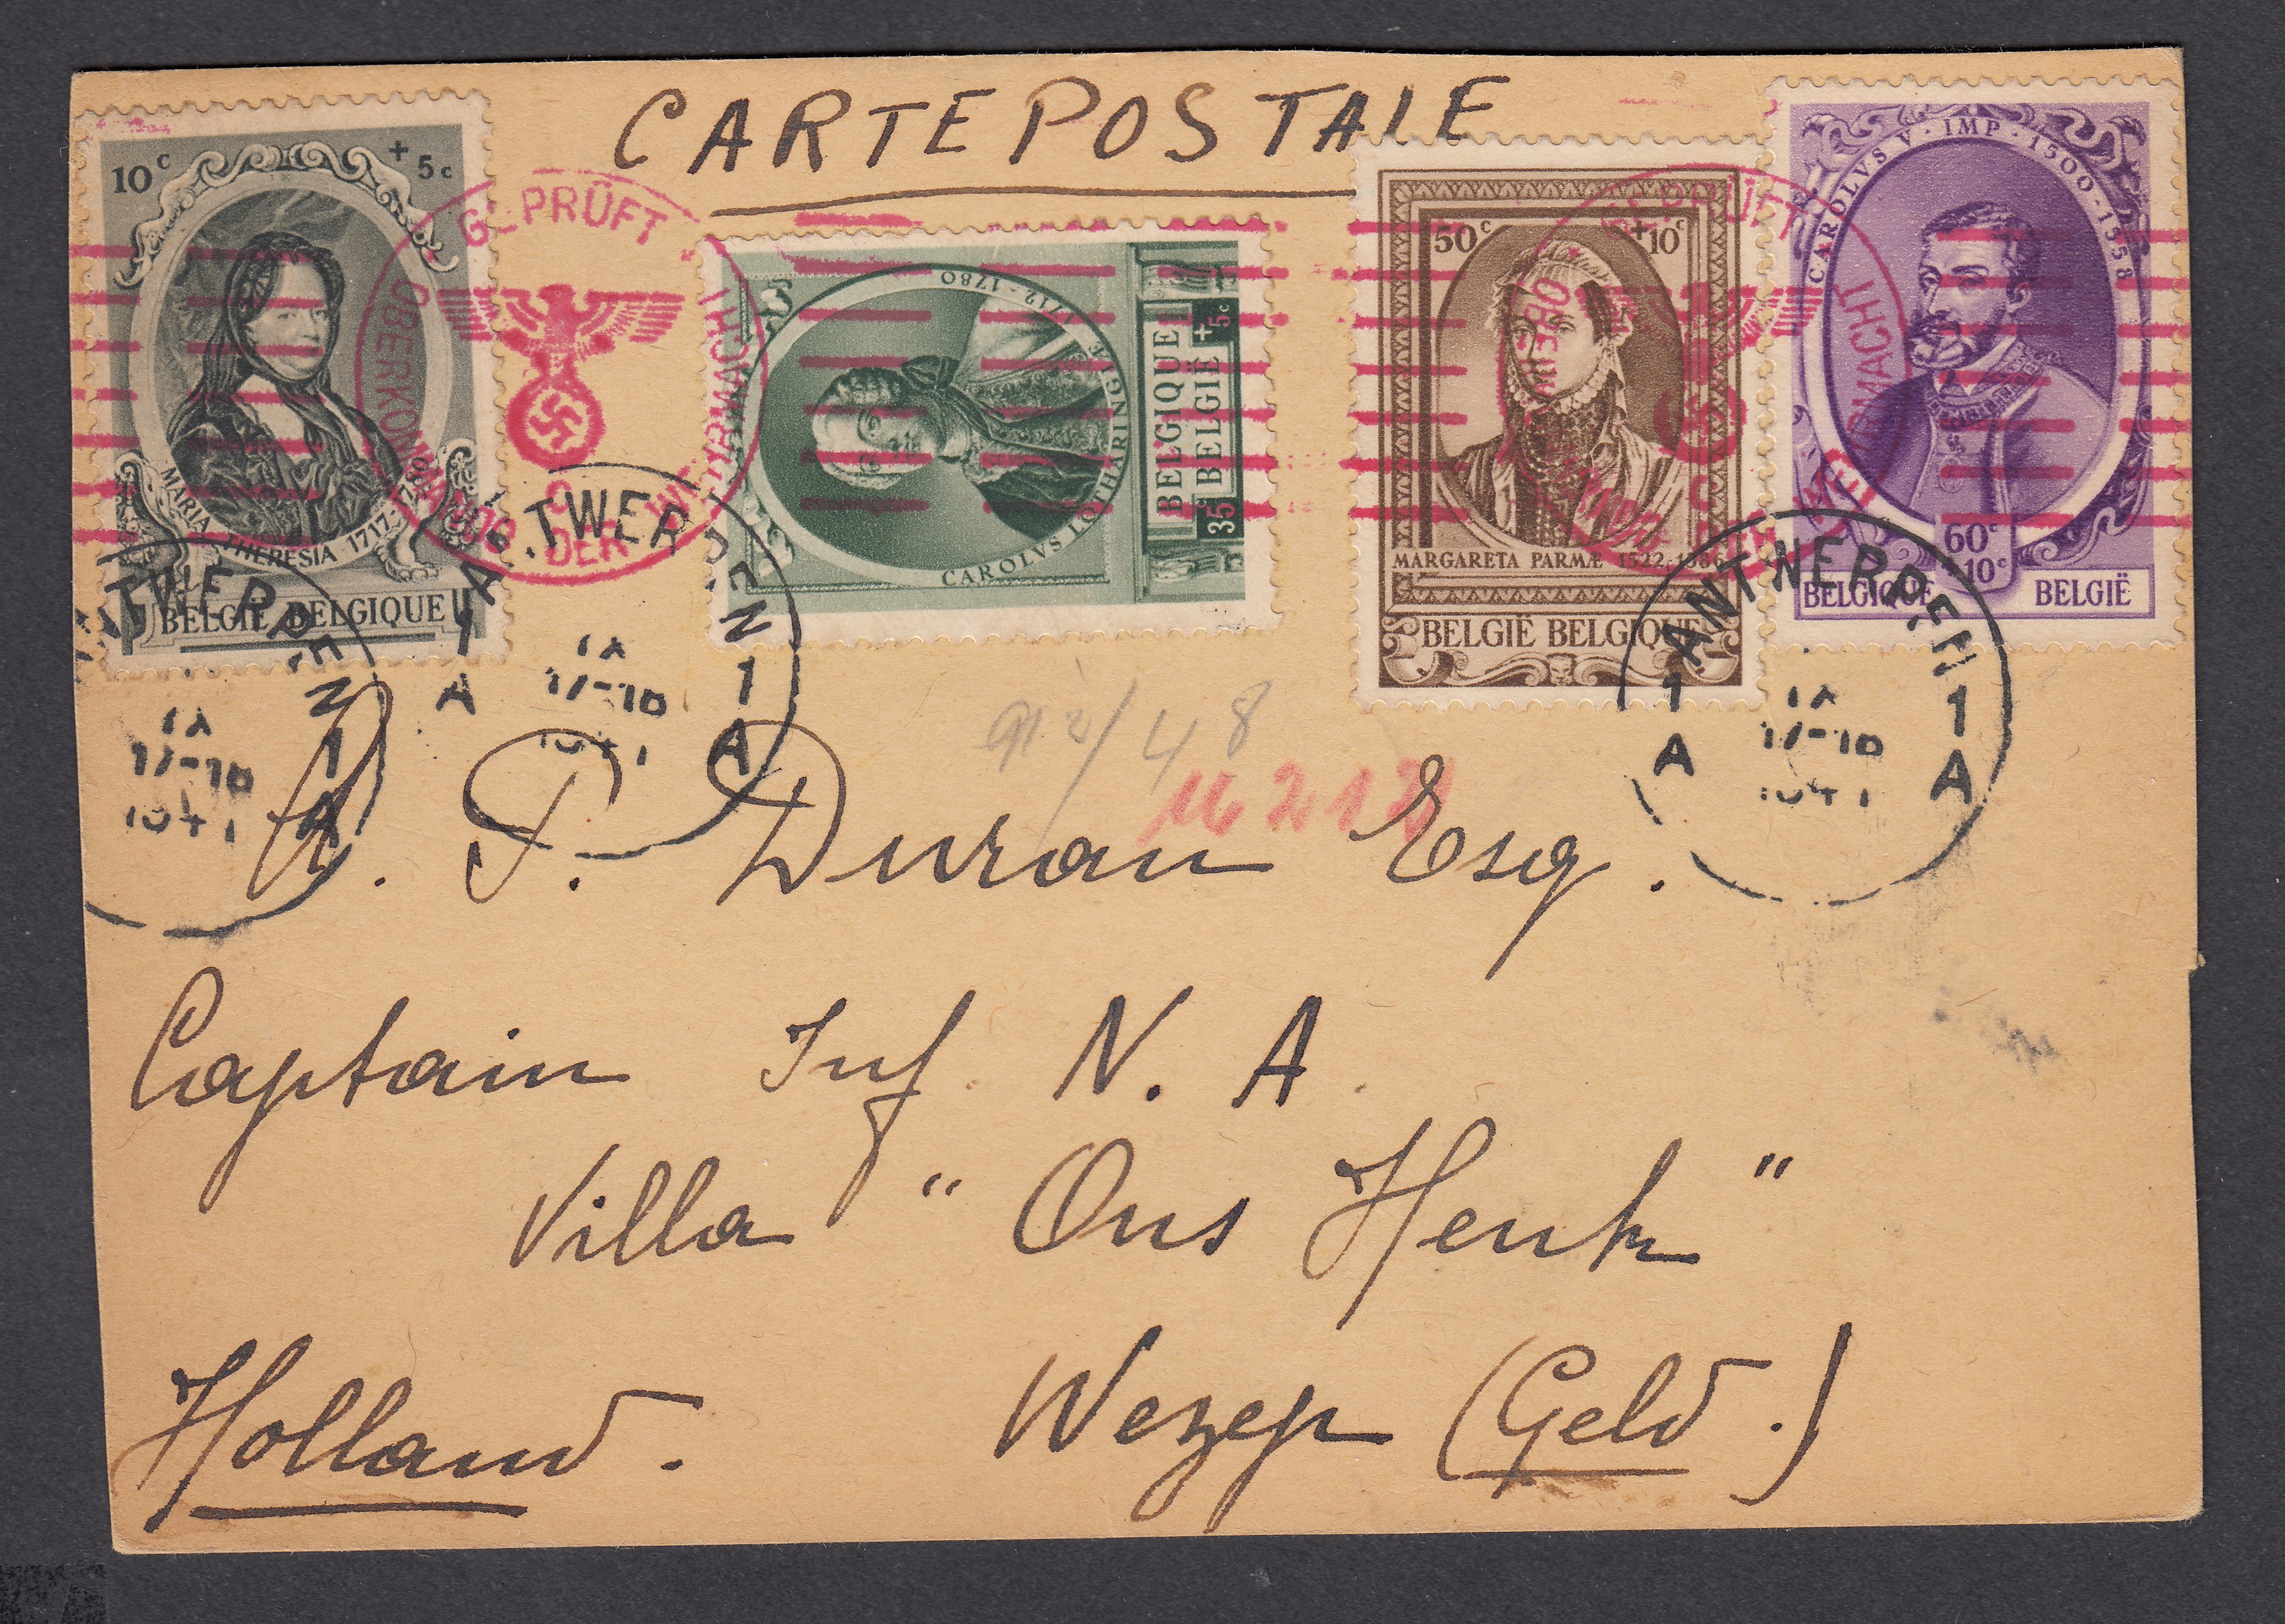 CARTE POSTALE
10c + 5c
MARIA THERESIA 1717-1780
BELGIË BELGIQUE
GEPRÜFT
OBERKOMMANDO DER WEHRMACHT
CAROLVS LOTHARINGIÆ 1712-1780
BELGIQUE
BELGIË
35c +5c
50c +10c
MARGARETA PARMÆ 1522-1586
BELGIË BELGIQUE
GEPRÜFT
OBERKOMMANDO DER WEHRMACHT
CAROLVS V · IMP · 1500-1558
60c
10c
BELGIQUE BELGIË
ANTWERPEN 1
1 A A
17-18
1941
ANTWERPEN 1
A A
17-18
1941
ANTWERPEN 1
1 A A
17-18
1941
P. Duran Esq.
Captain Inf. N. A.
Villa "Ons Henk"
Wezep (Geld.)
Holland.